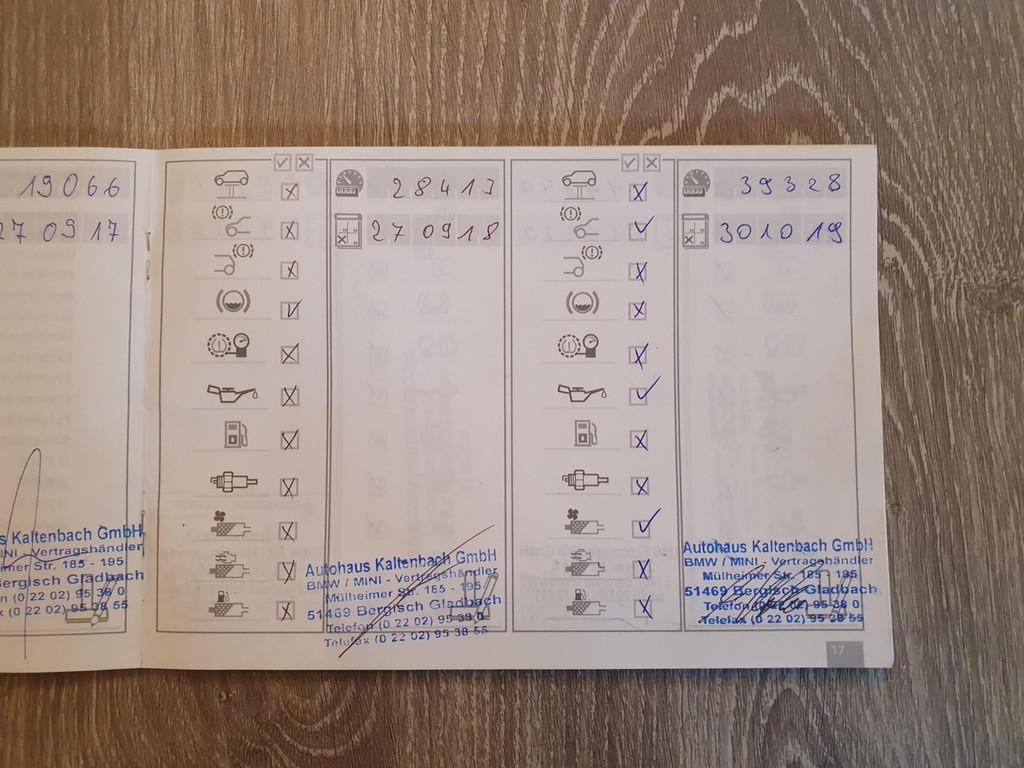 19066
270917
us Kaltenbach GmbH
MINI - Vertragshändler
imer Str. 185 - 195
Bergisch Gladbach
(0 22 02) 95 38 0
(0 22 02) 95 38 55
28413
270918
Autohaus Kaltenbach GmbH
BMW / MINI - Vertragshändler
Mülheimer Str. 185 - 195
51469 Bergisch Gladbach
Telefon (0 22 02) 95 38 0
Telefax (0 22 02) 95 38 55
39328
301019
Autohaus Kaltenbach GmbH
BMW / MINI - Vertragshändler
Mülheimer Str. 185 - 195
51469 Bergisch Gladbach
Telefon (0 22 02) 95 38 0
Telefax (0 22 02) 95 38 55
17